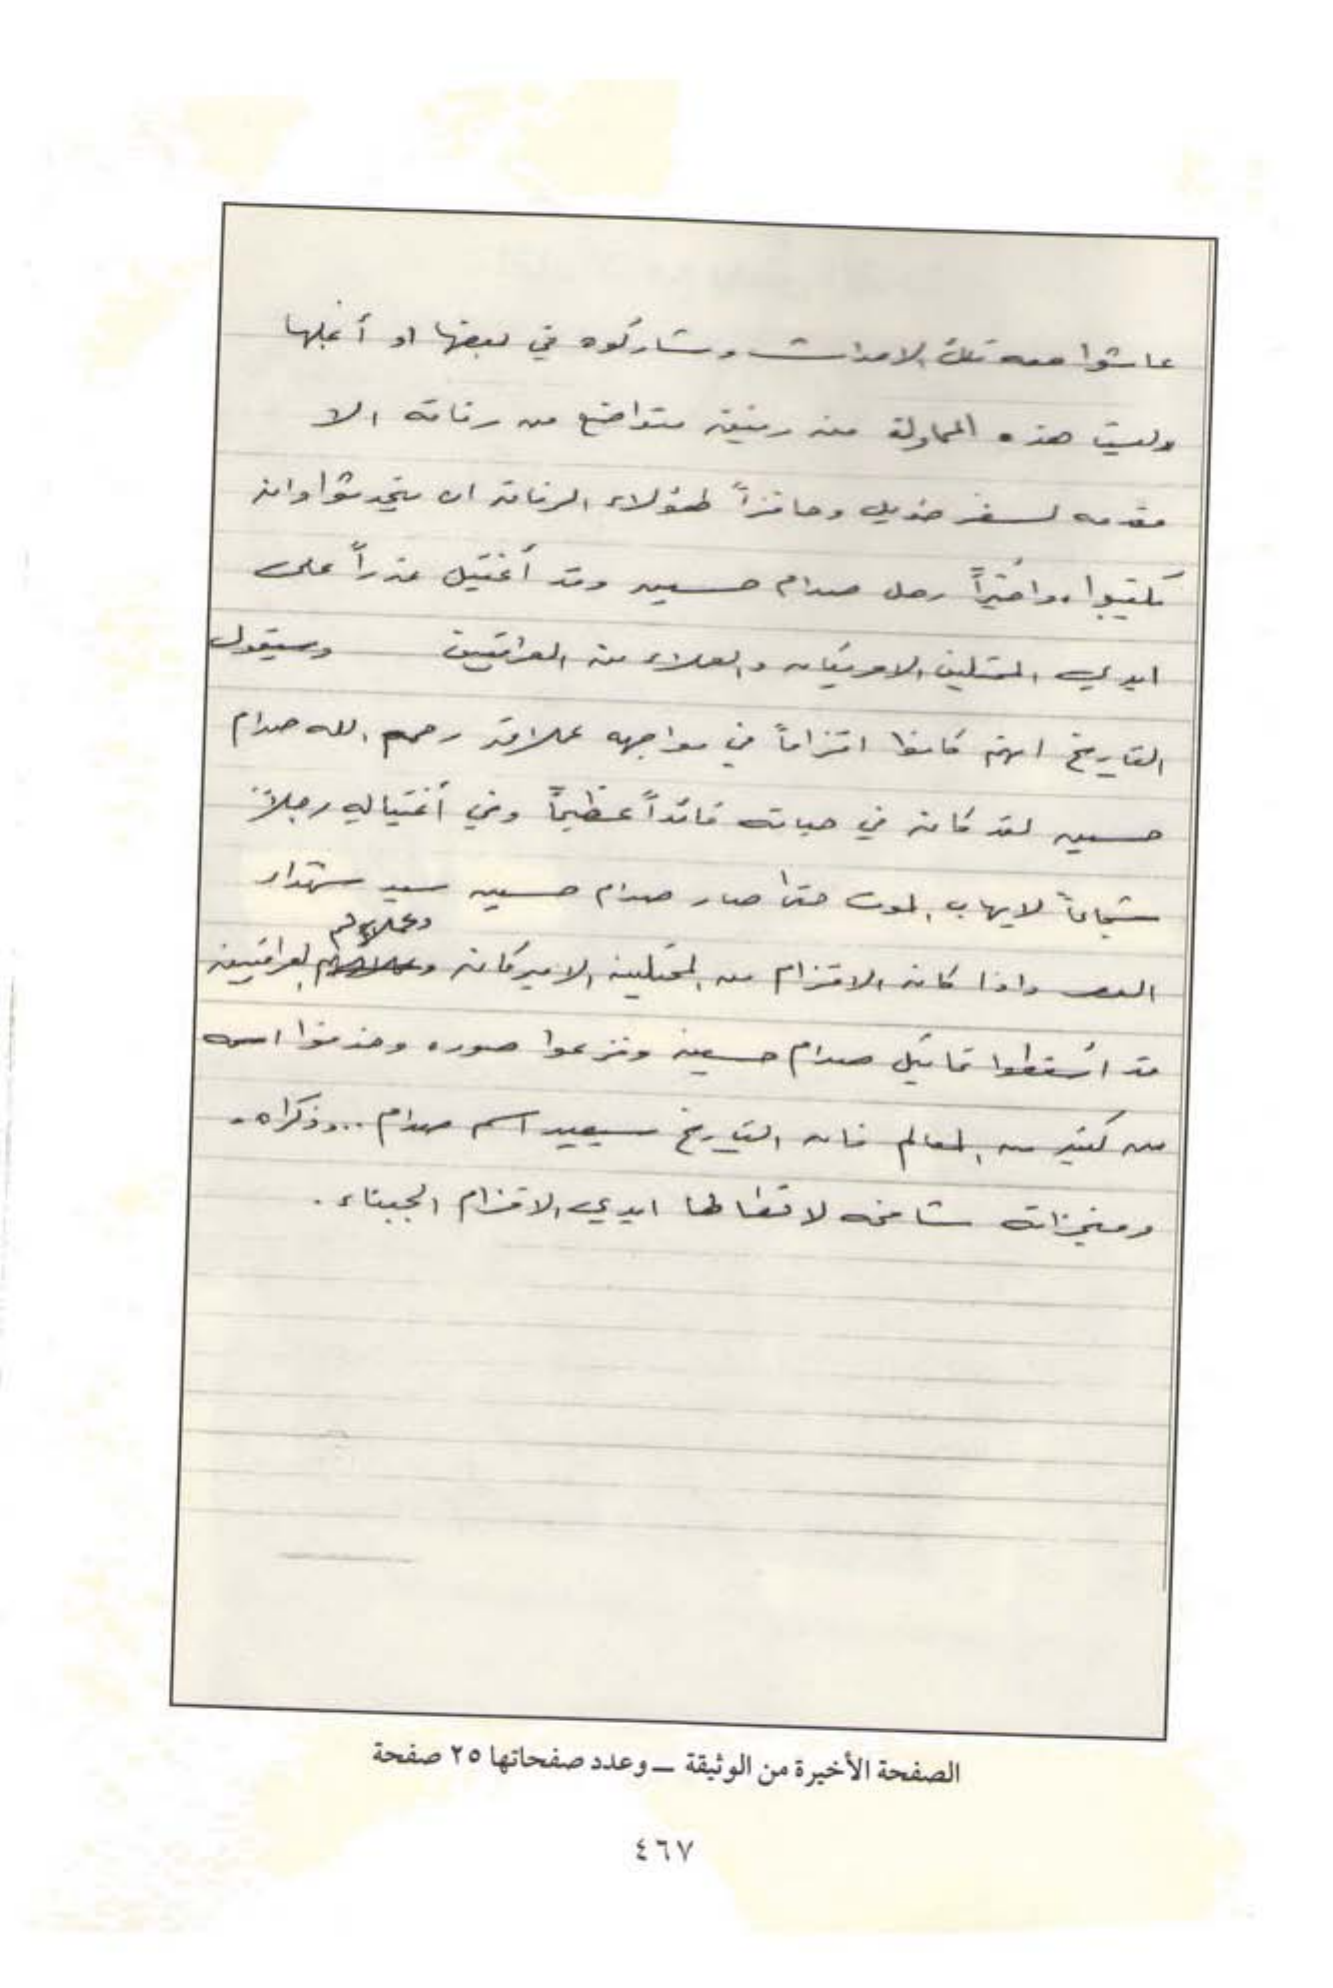 عاشوا معه تلك الاحداث وشاركوه في بعضها او أغلبها
وليست هذه المحاولة من رفيق متواضع من رفاقه الا
مقدمه لسفر طويل وحافزاً لهؤلاء الرفاق ان يتحدثوا وان
يكتبوا، وأخيراً رحل صدام حسين وقد أغتيل غدراً على
ايدي المحتلين الامريكان والعملاء من العراقيين وسيقول
التاريخ انهم كانوا اقزاماً في مواجهه عملاق رحم الله صدام
حسين لقد كان في حياته قائداً عظيماً وفي أغتياله رجلاً
شجاعاً لايهاب الموت حتى صار صدام حسين سيد شهداء
العصر واذا كان الاقزام من المحتلين الاميركان وعملاؤهم العراقيين
قد أسقطوا تماثيل صدام حسين ونزعوا صوره وحذفوا اسمه
من كثير من المعالم فان التاريخ سيعيد اسم صدام .. وذكراه.
ومنجزاته شامخه لاتطالها ايدي الاقزام الجبناء.
الصفحة الأخيرة من الوثيقة ــ وعدد صفحاتها ٢٥ صفحة
٤٦٧